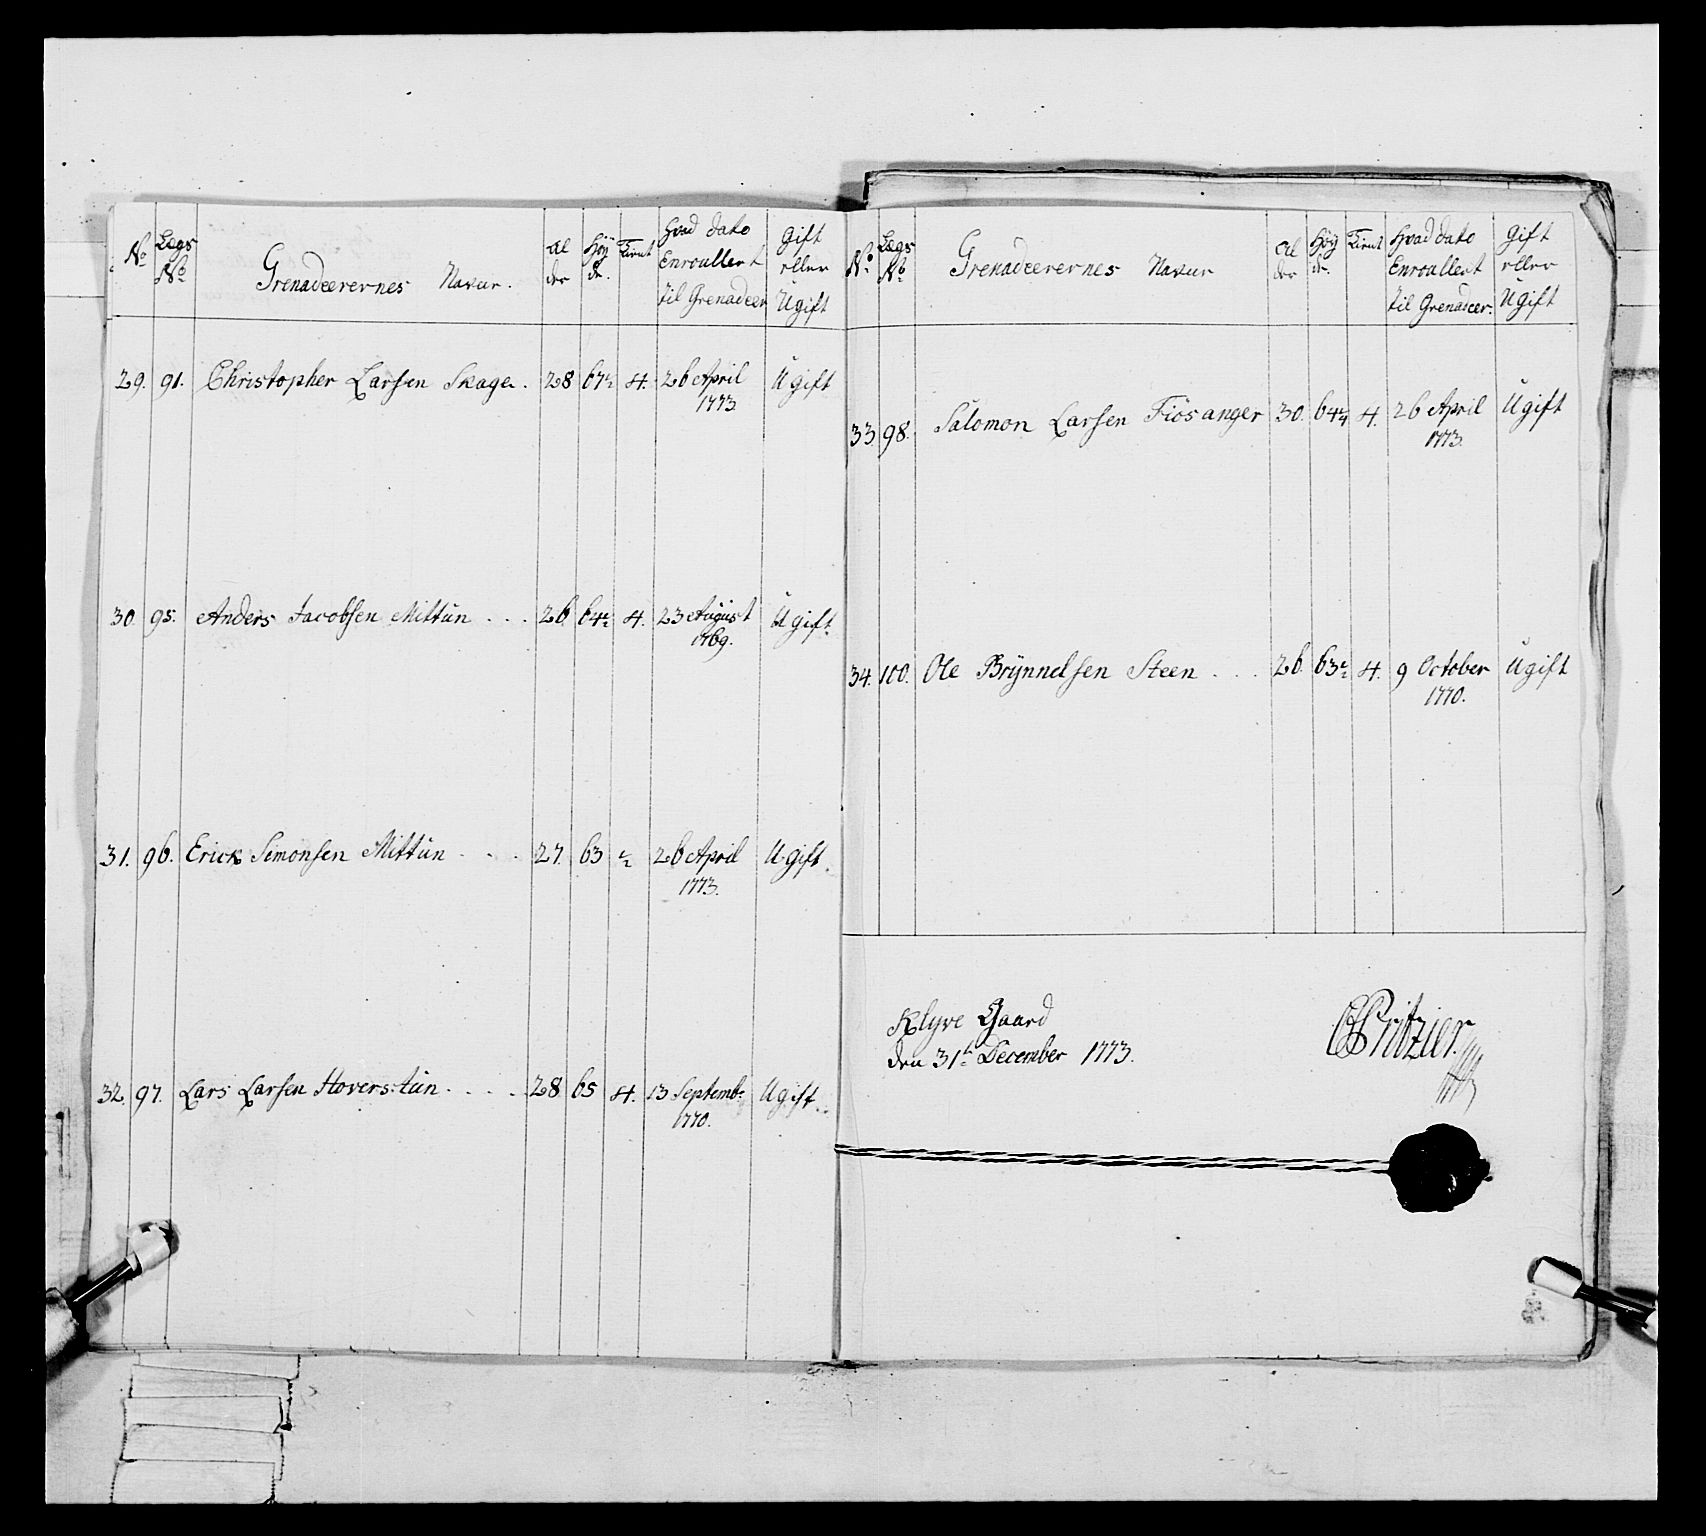 No Lægs No Grenadeerernes Navne. Al der Høy de. Tient Hvad Dato Enroullert til Grenadeer Gift eller Ugift
29. 91. Christopher Larsen Skage. 28 67½ 4. 26 April 1773. Ugift
30 95. Anders Jacobsen Mittun . . . 26 64½ 4. 23 August 1769. Ugift.
31. 96. Erick Simonsen Mittun . . . 27. 63 ½ 26 April 1773. Ugift.
32. 97. Lars Larsen Hoverstun . . . . 28 65 4. 13 Septembr 1770. Ugift.
No Lægs No Grenadeerernes Navne Al der Høy de. Tient Hvad Dato Enroullert til Grenadeer. Gift eller Ugift
33. 98. Salomon Larsen Fiösanger 30. 64¼ 4. 26 April 1773. Ugift
34. 100. Ole Brÿnnelsen Steen . . . 26. 63½ 4. 9 October 1770. Ugift
Klyve Gaard
den 31te December 1773.
Pritzier.